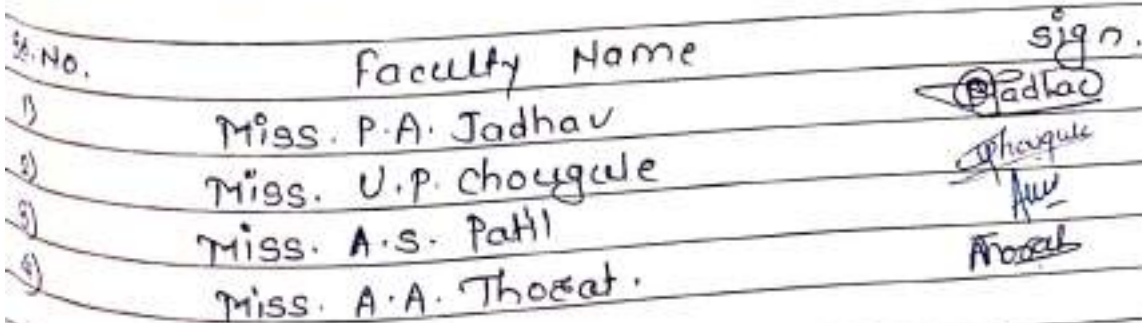 Sr. No. Faculty Name Sign.
1) Miss. P.A. Jadhav Jadhav
2) Miss. U.P. Chougule Chougule
3) Miss. A.S. Patil
4) Miss. A.A. Thorat. AThorat